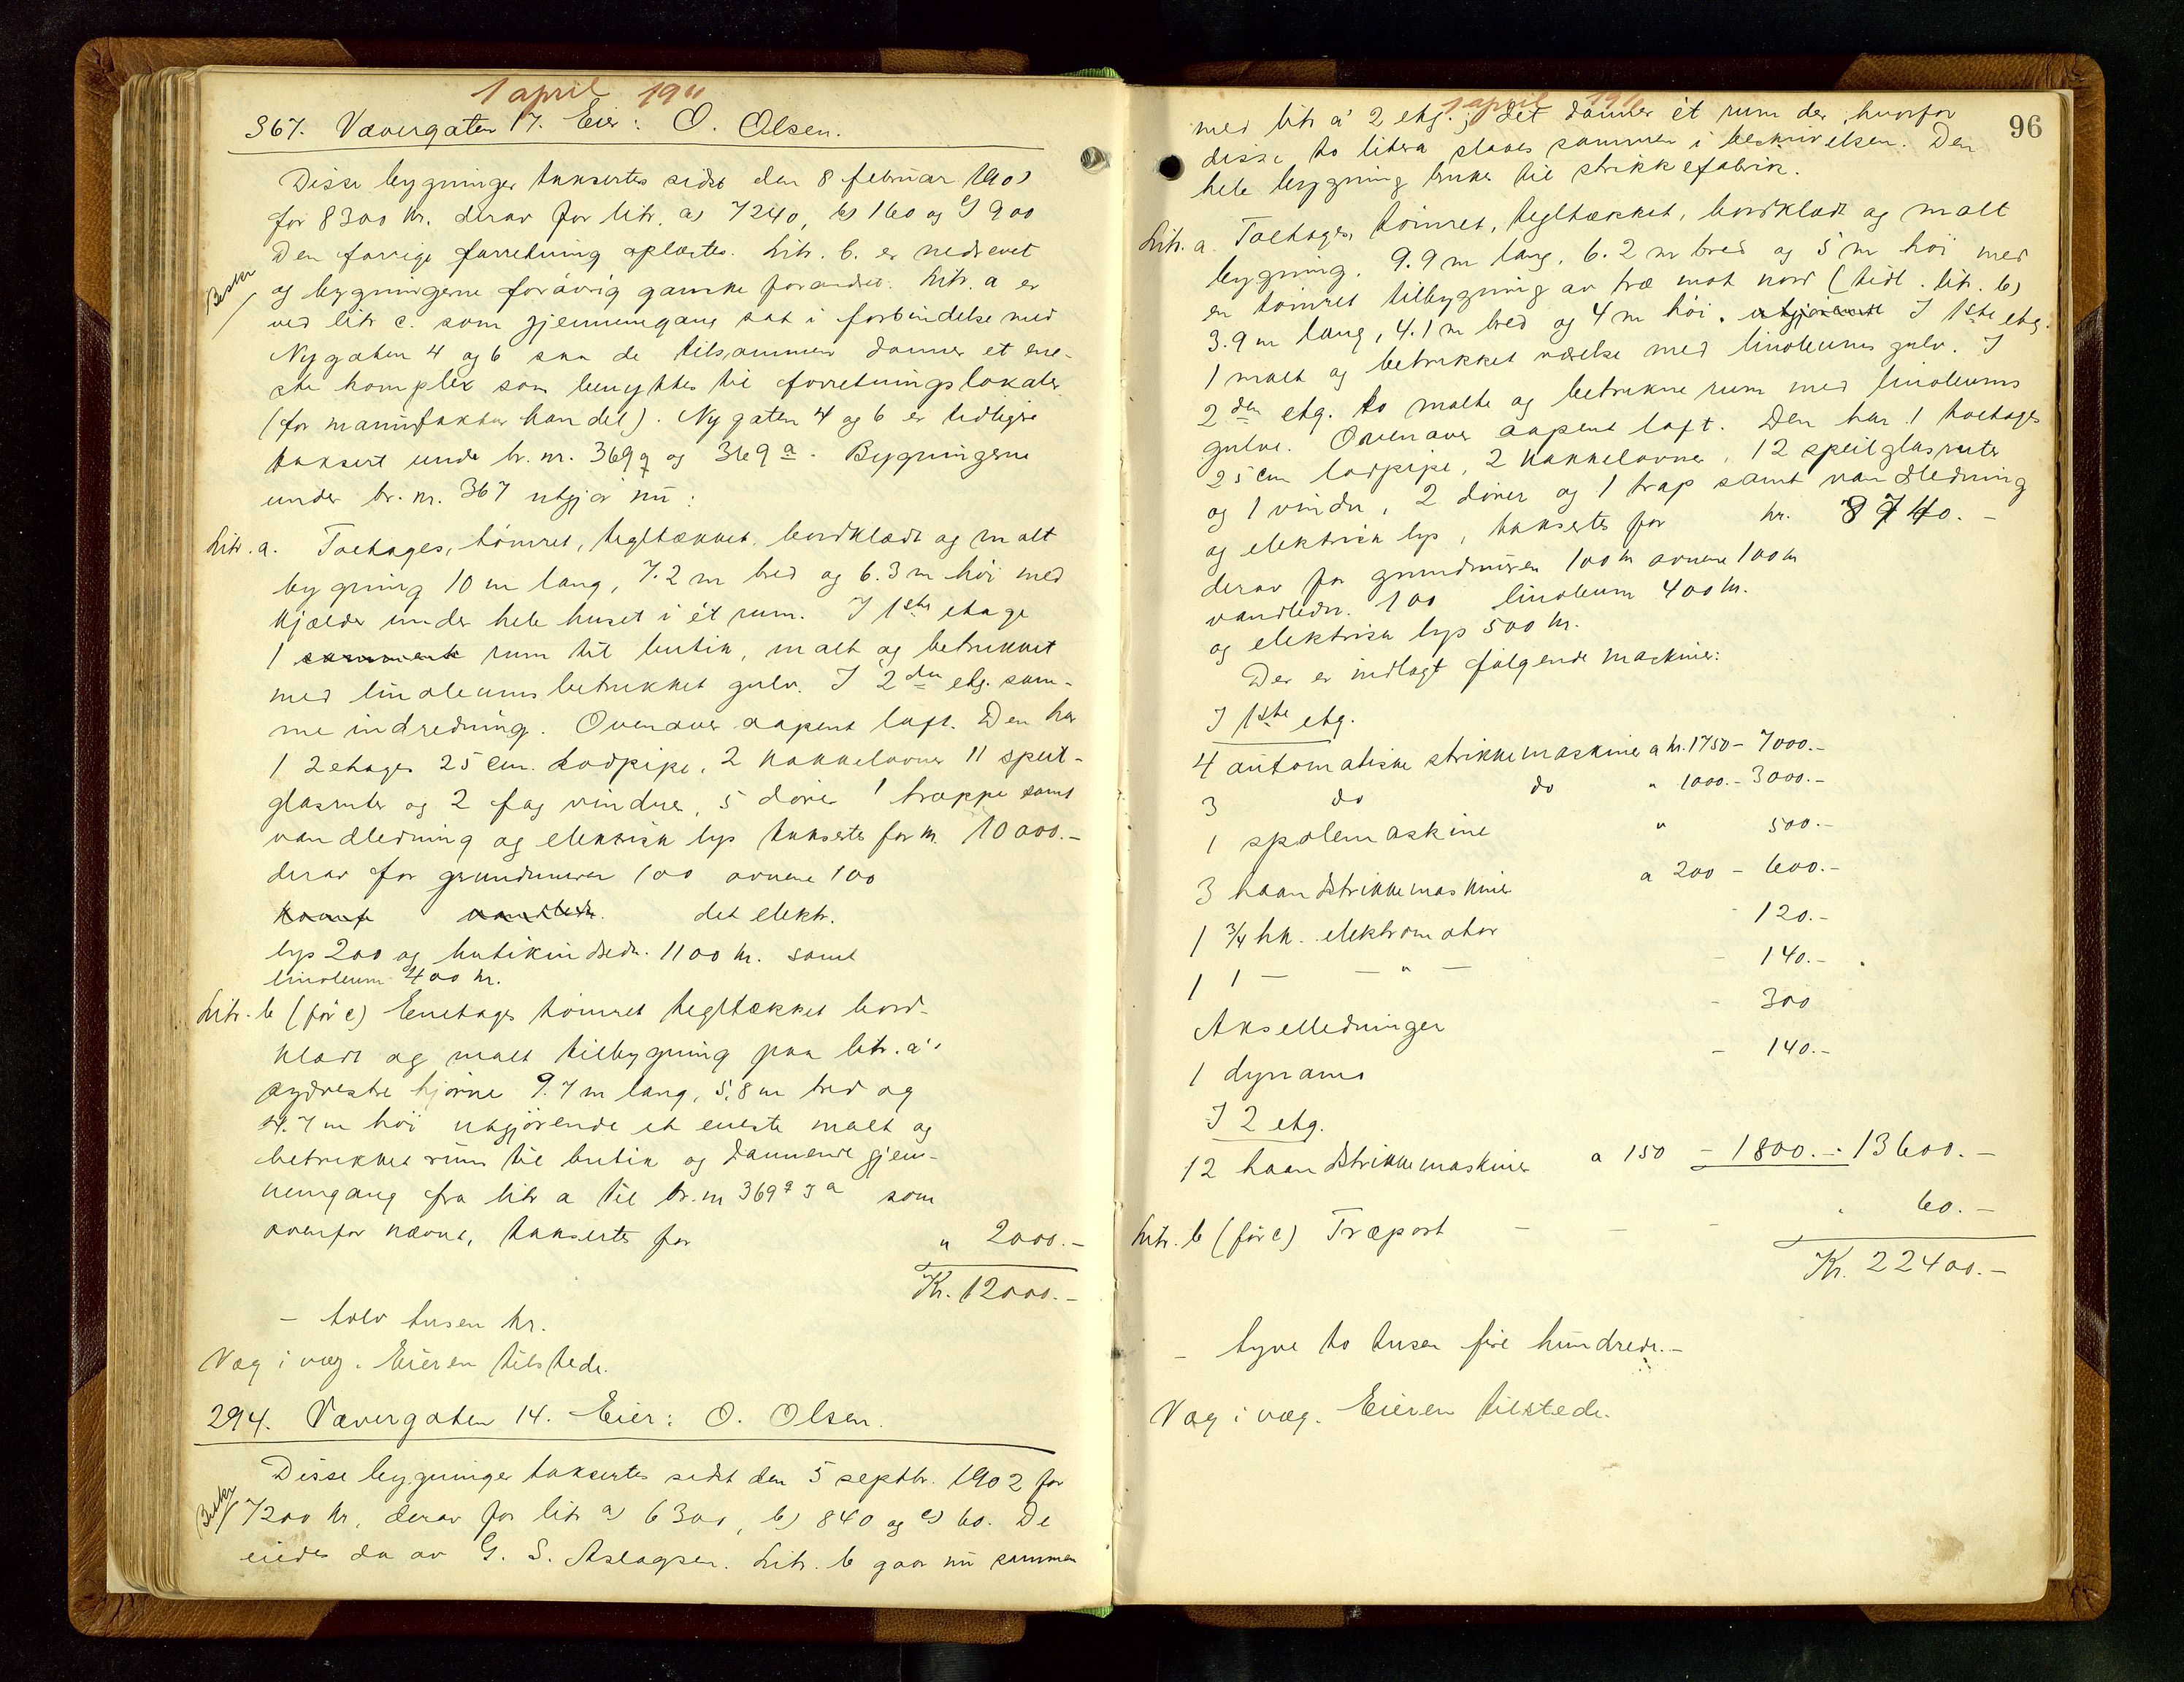 1 april 1911
367. Vævergaten 17. Eier: O. Olsen.
Disse bygninger taksertes sidst den 8 februar 1901
for 8300 kr. derav for litr. a) 7240, b) 160 og c) 900
Den forrige forretning oplæstes. Litr. b. er nedrevet
Beskr
og bygningerne forøvrig ganske forandret. Litr. a er
ved litr c. som gjennemgang sat i forbindelse med
Nygaten 4 og 6 saa de tilsammen danner et ene-
ste komplex som benyttes til forretningslokaler
(for manufaktur handel). Nygaten 4 og 6 er tidligere
taksert under br. nr. 369q og 369a. Bygningerne
under br. nr. 367 utgjør nu:
Litr. a. Toetages, tømret, tegltækket, bordklædt og malt
bygning 10 m lang, 7.2 m bred og 6.3 m høi med
kjælder under hele huset i ét rum. I 1ste etage
1 rum til butik, malt og betrukket
med linoleumsbetrukket gulv. I 2den etg. sam-
me indredning. Ovenover aapent loft. Den har
1 2etages 25 cm. lodpipe, 2 kakkelovner 11 speil-
glasruter og 2 fag vinduer, 5 dører 1 trappe samt
vandledning og elektrisk lys taksertes for kr. 10000.-
derav for grundmuren 100 ovnene 100
vandledn. det elektr.
lys 200 og butikindredn. 1100 kr. samt
linoleum 400 kr.
Litr. b (før c) Enetages tømret tegltækket bord-
klædt og malt tilbygning paa litr. a's
sydvestre hjørne 9.7 m lang, 5.8 m bred og
4.7 m høi utgjørende et eneste malt og
betrukket rum til butik og dannende gjen-
nemgang fra litr a til br. nr 369q og a som
ovenfor nævnt, taksertes for " 2000.-
Kr. 12000.-
- tolv tusen kr.
Væg i væg. Eieren tilstede.
294. Vævergaten 14. Eier: O. Olsen.
Disse bygninger taksertes sidst den 5 septbr. 1902 for
Beskr
7200 kr, derav for litr a) 6300, b) 840 og c) 60. De
eiedes da av G. S. Aslagsen. Litr. b gaar nu sammen
1 april 1911
96
med litr a' 2 etg.; det danner ét rum der, hvorfor
disse to litera slaaes sammen i beskrivelsen. Den
hele bygning brukes til strikkefabrik.
Litr. a. Toetages, tømret, tegltækket, bordklædt og malt
bygning. 9.9 m lang, 6.2 m bred og 5 m høi med
en tømret tilbygning av træ mot nord (tidl. litr. b)
3.9 m lang, 4.1 m bred og 4 m høi. utgjørende I 1ste etg.
1 malt og betrukket værelse med linoleums gulv. I
2den etg. to malte og betrukne rum med linoleums
gulve. Ovenover aapent loft. Den har 1 toetages
25 cm lodpipe, 2 kakkelovner, 12 speilglasruter
og 1 vindu, 2 dører og 1 trap samt vandledning
og elektrisk lys, taksertes for kr. 8740.-
derav for grundmuren 100 kr ovnene 100 kr
vandledn. 100 linoleum 400 kr.
og elektrisk lys 500 kr.
Der er indlagt følgende maskiner:
I 1ste etg.
4 automatiske strikkemaskiner a kr. 1750 - 7000.-
3 do do " 1000.- 3000.-
1 spolemaskine " 500.-
3 haandstrikkemaskiner a 200 - 600.-
1 3/4 hk. elektromotor - 120.-
1 1 — — " — - 140.-
Akselledninger - 300
1 dynamo - 140.-
I 2 etg.
12 haandstrikkemaskiner a 150 - 1800.- 13600.-
Litr. b (før c) Træport - - - " 60.-
Kr. 22400.-
- tyve to tusen fire hundrede.-
Væg i væg. Eieren tilstede.